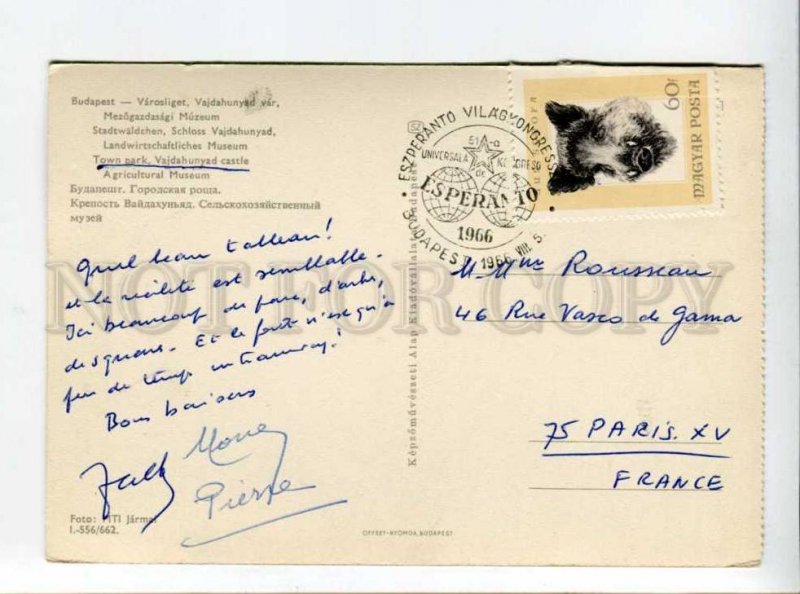 Budapest — Városliget, Vajdahunyad vár,
Mezőgazdasági Múzeum
Stadtwäldchen, Schloss Vajdahunyad,
Landwirtschaftliches Museum
Town park, Vajdahunyad castle
Agricultural Museum
Будапешт. Городская роща.
Крепость Вайдахуньяд. Сельскохозяйственный
музей
Quel beau tableau!
et la réalité est semblable.
Ici beaucoup de parcs, d'arbres,
des squares. Et la forêt n'est qu'à
peu de temps
Bons baisers
Pierre
Foto: MTI Jármai
I.-556/662.
Képzőművészeti Alap Kiadóvállalata, Budapest
OFFSET-NYOMDA, BUDAPEST
ESZPERANTÓ VILÁGKONGRESSZUS
51-a
UNIVERSALA KONGRESO
de
ESPERANTO
1966
BUDAPEST 1966 VIII. 5.
MAGYAR POSTA
60f
M. Mme Rousseau
46 Rue Vasco de Gama
75 PARIS. XV
FRANCE
NOT FOR COPY